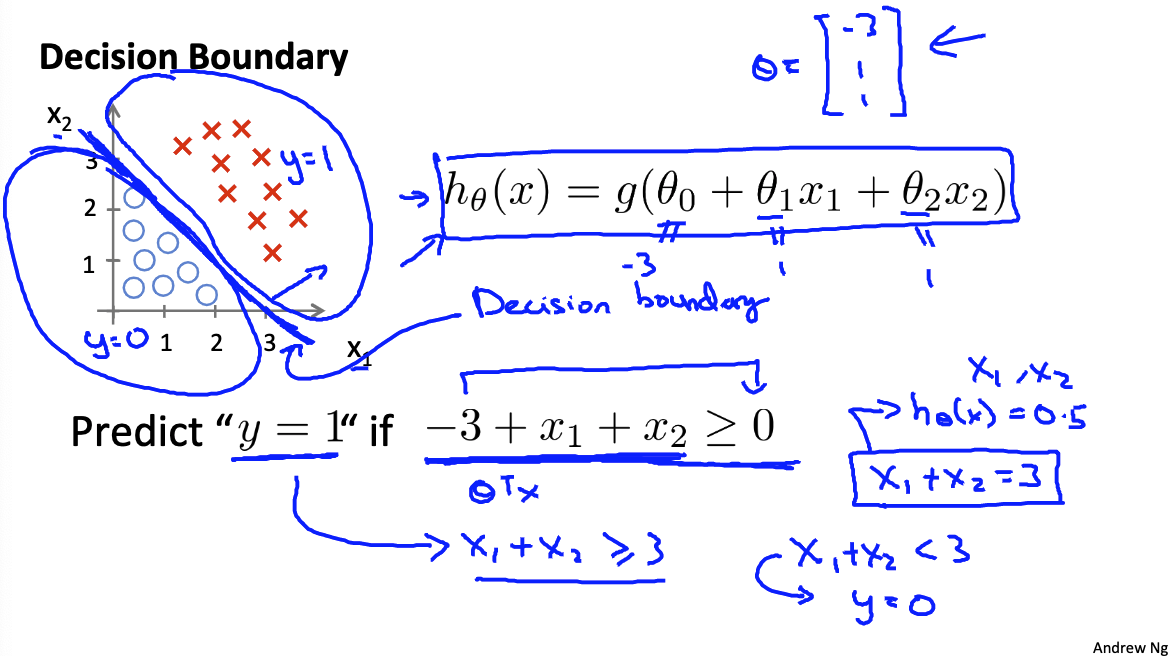 Decision Boundary
θ = [-3 1 1]
x2
3
2
1
1 2 3
x1
y=1
y=0
hθ(x) = g(θ0 + θ1x1 + θ2x2)
-3 1 1
Decision boundary
Predict “y = 1“ if −3 + x1 + x2 ≥ 0
θᵀx
x1 + x2 ≥ 3
x1, x2
hθ(x) = 0.5
x1 + x2 = 3
x1 + x2 < 3
y = 0
Andrew Ng